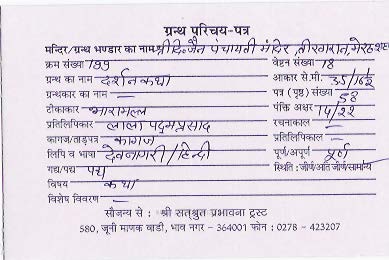 ग्रन्थ परिचय-पत्र
मन्दिर/ग्रन्थ भण्डार का नाम श्री दि. जैन पंचायती मंदिर, तीरगरान, मेरठ शहर
क्रम संख्या 199 वेष्टन संख्या 18
ग्रन्थ का नाम दर्शन कथा आकार से.मी. 35/16½
ग्रन्थकार का नाम — पत्र (पृष्ठ) संख्या 58
टीकाकार भारामल्ल पंक्ति अक्षर 14/22
प्रतिलिपिकार लाला पदमप्रसाद रचनाकाल —
कागज/ताड़पत्र कागज प्रतिलिपिकाल —
लिपि व भाषा देवनागरी/हिन्दी पूर्ण/अपूर्ण पूर्ण
गद्य/पद्य पद्य स्थिति : जीर्ण/अति जीर्ण/सामान्य
विषय कथा
विशेष विवरण —
सौजन्य से : श्री सत्श्रुत प्रभावना ट्रस्ट
580, जूनी माणक वाडी, भाव नगर - 364001 फोन : 0278 - 423207